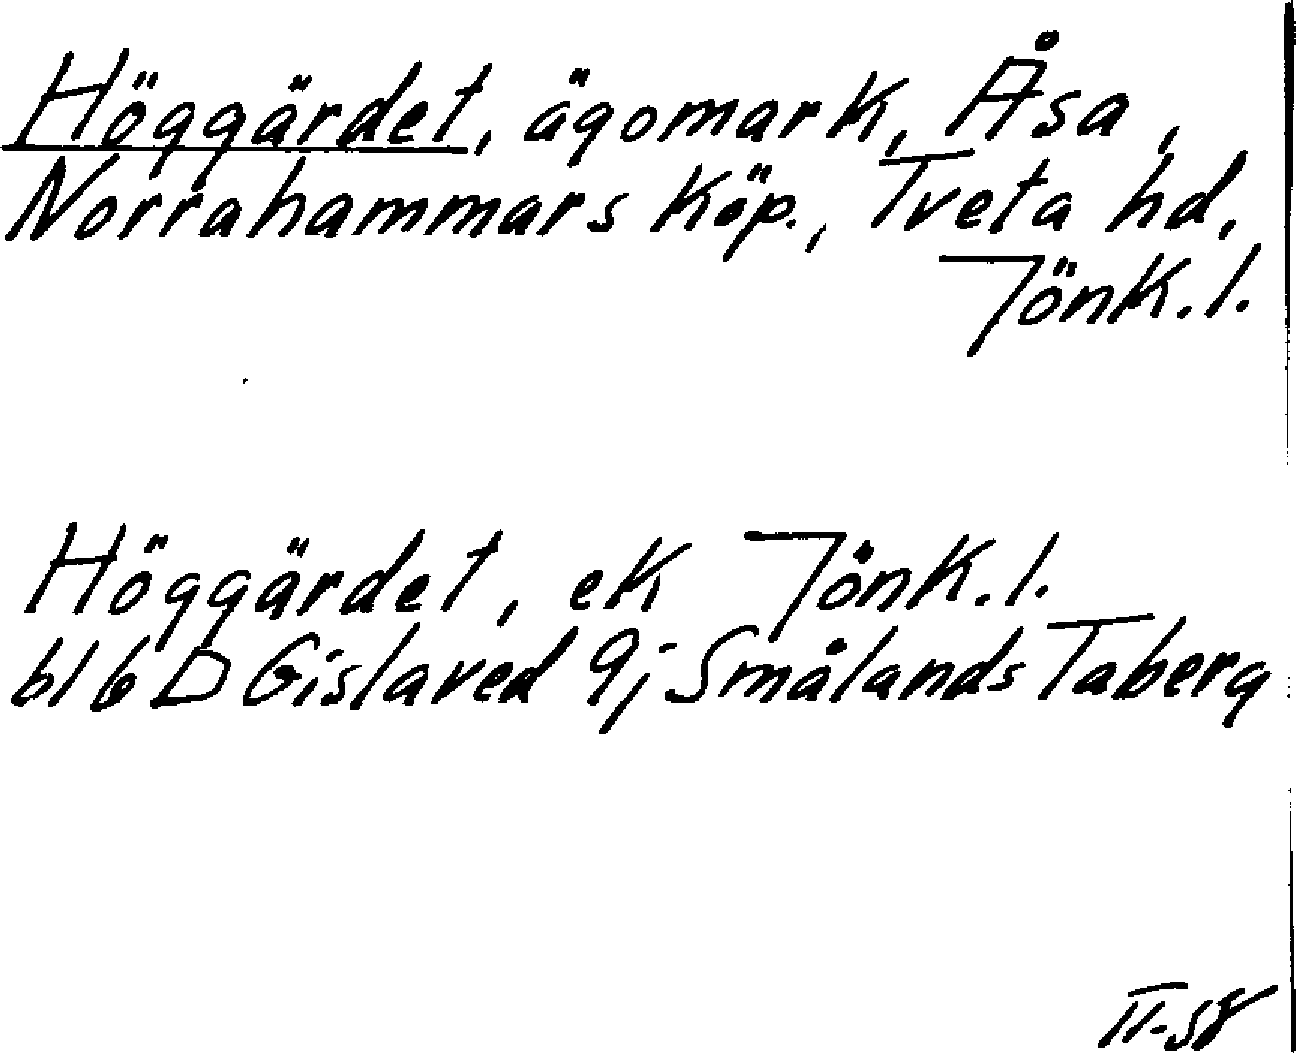 Höggärdet, ägomark, Åsa,
Norrahammars köp., Tveta hd,
Jönk. l.
Höggärdet, ek Jönk. l.
bl 6 D Gislaved 9j Smålands Taberg
II-58